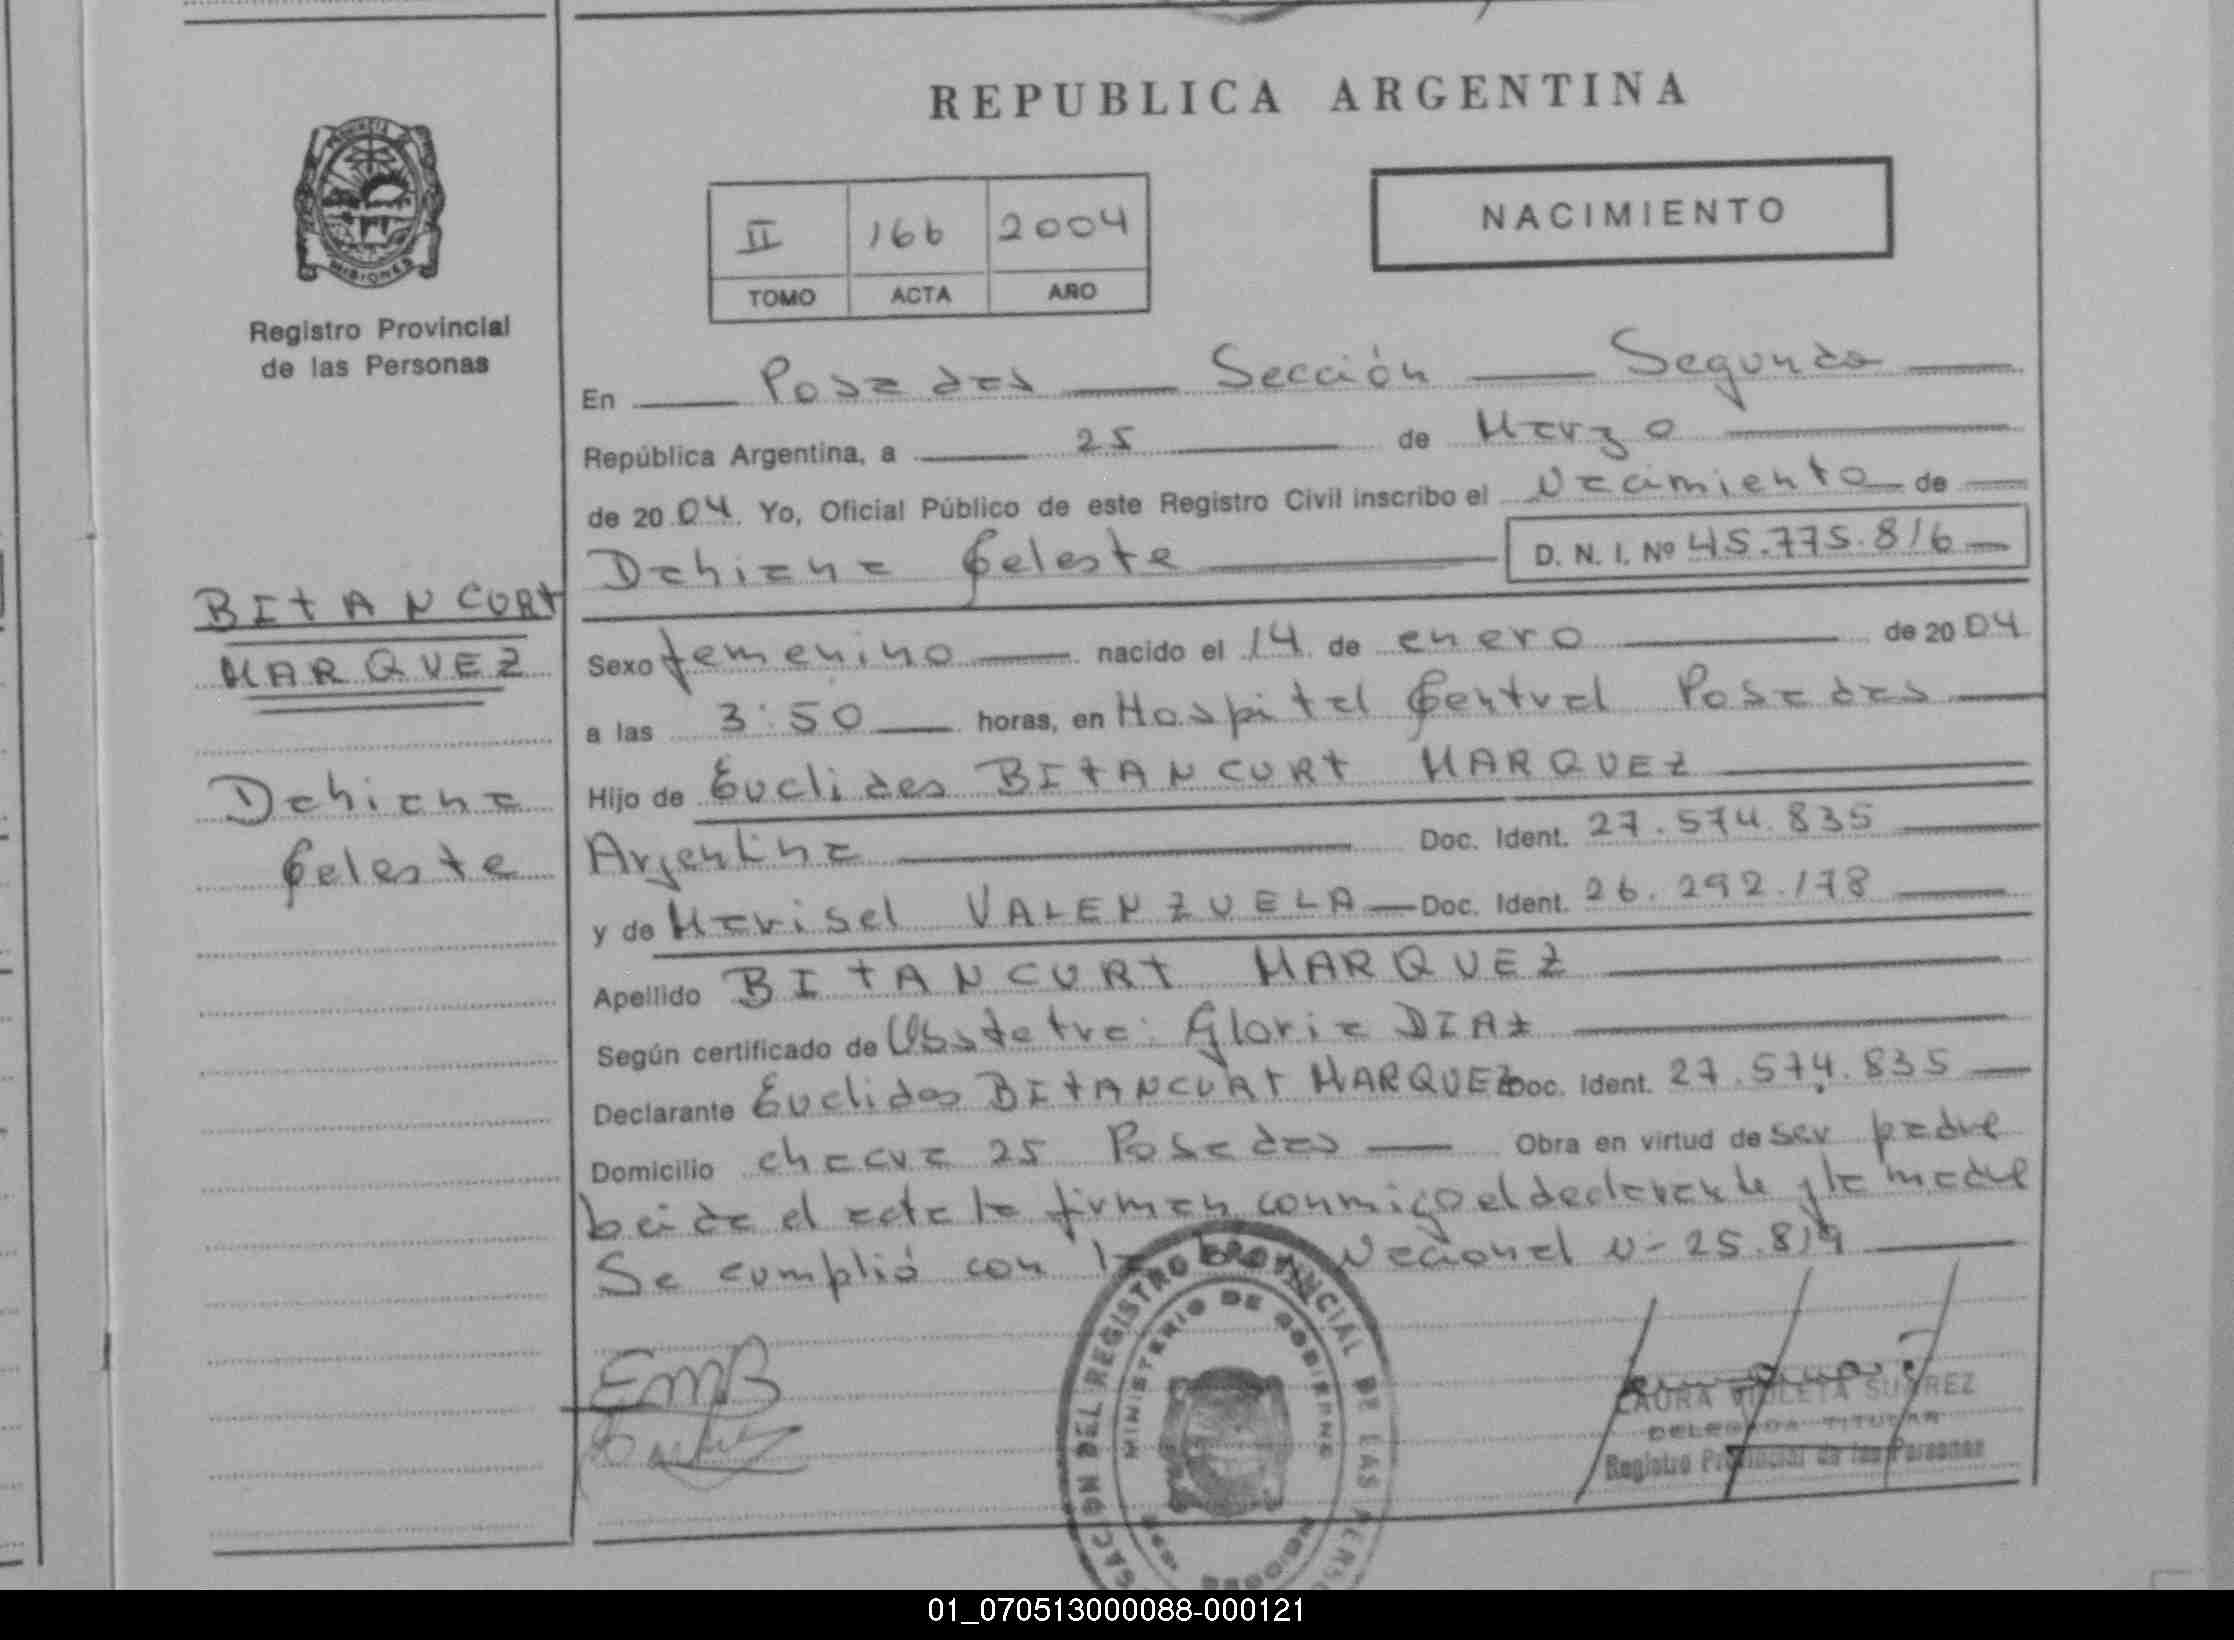 REPUBLICA ARGENTINA
NACIMIENTO
II 166 2004
TOMO ACTA AÑO
PROVINCIA
MISIONES
Registro Provincial
de las Personas
BITANCURT
MARQUEZ
Dahiana
Celeste
En Posadas Sección Segunda
República Argentina, a 25 de Marzo
de 2004. Yo, Oficial Público de este Registro Civil inscribo el Nacimiento de
Dahiana Celeste D. N. I. Nº 45.775.816
Sexo femenino nacido el 14 de enero de 2004
a las 3:50 horas, en Hospital Central Posadas
Hijo de Euclides BITANCURT MARQUEZ
Argentina Doc. Ident. 27.574.835
y de Marisel VALENZUELA Doc. Ident. 26.292.178
Apellido BITANCURT MARQUEZ
Según certificado de Obstetra: Gloria DIAZ
Declarante Euclides BITANCURT MARQUEZ Doc. Ident. 27.574.835
Domicilio chacra 25 Posadas Obra en virtud de ser padre
Leida el acta la firman conmigo el declarante y la madre
Se cumplió con la Ley Nacional N- 25.819
EMB
DEL REGISTRO PROVINCIAL DE LAS
MINISTERIO DE GOBIERNO
LAURA VIOLETA SUAREZ
DELEGADA TITULAR
Registro Provincial de las Personas
01_070513000088-000121